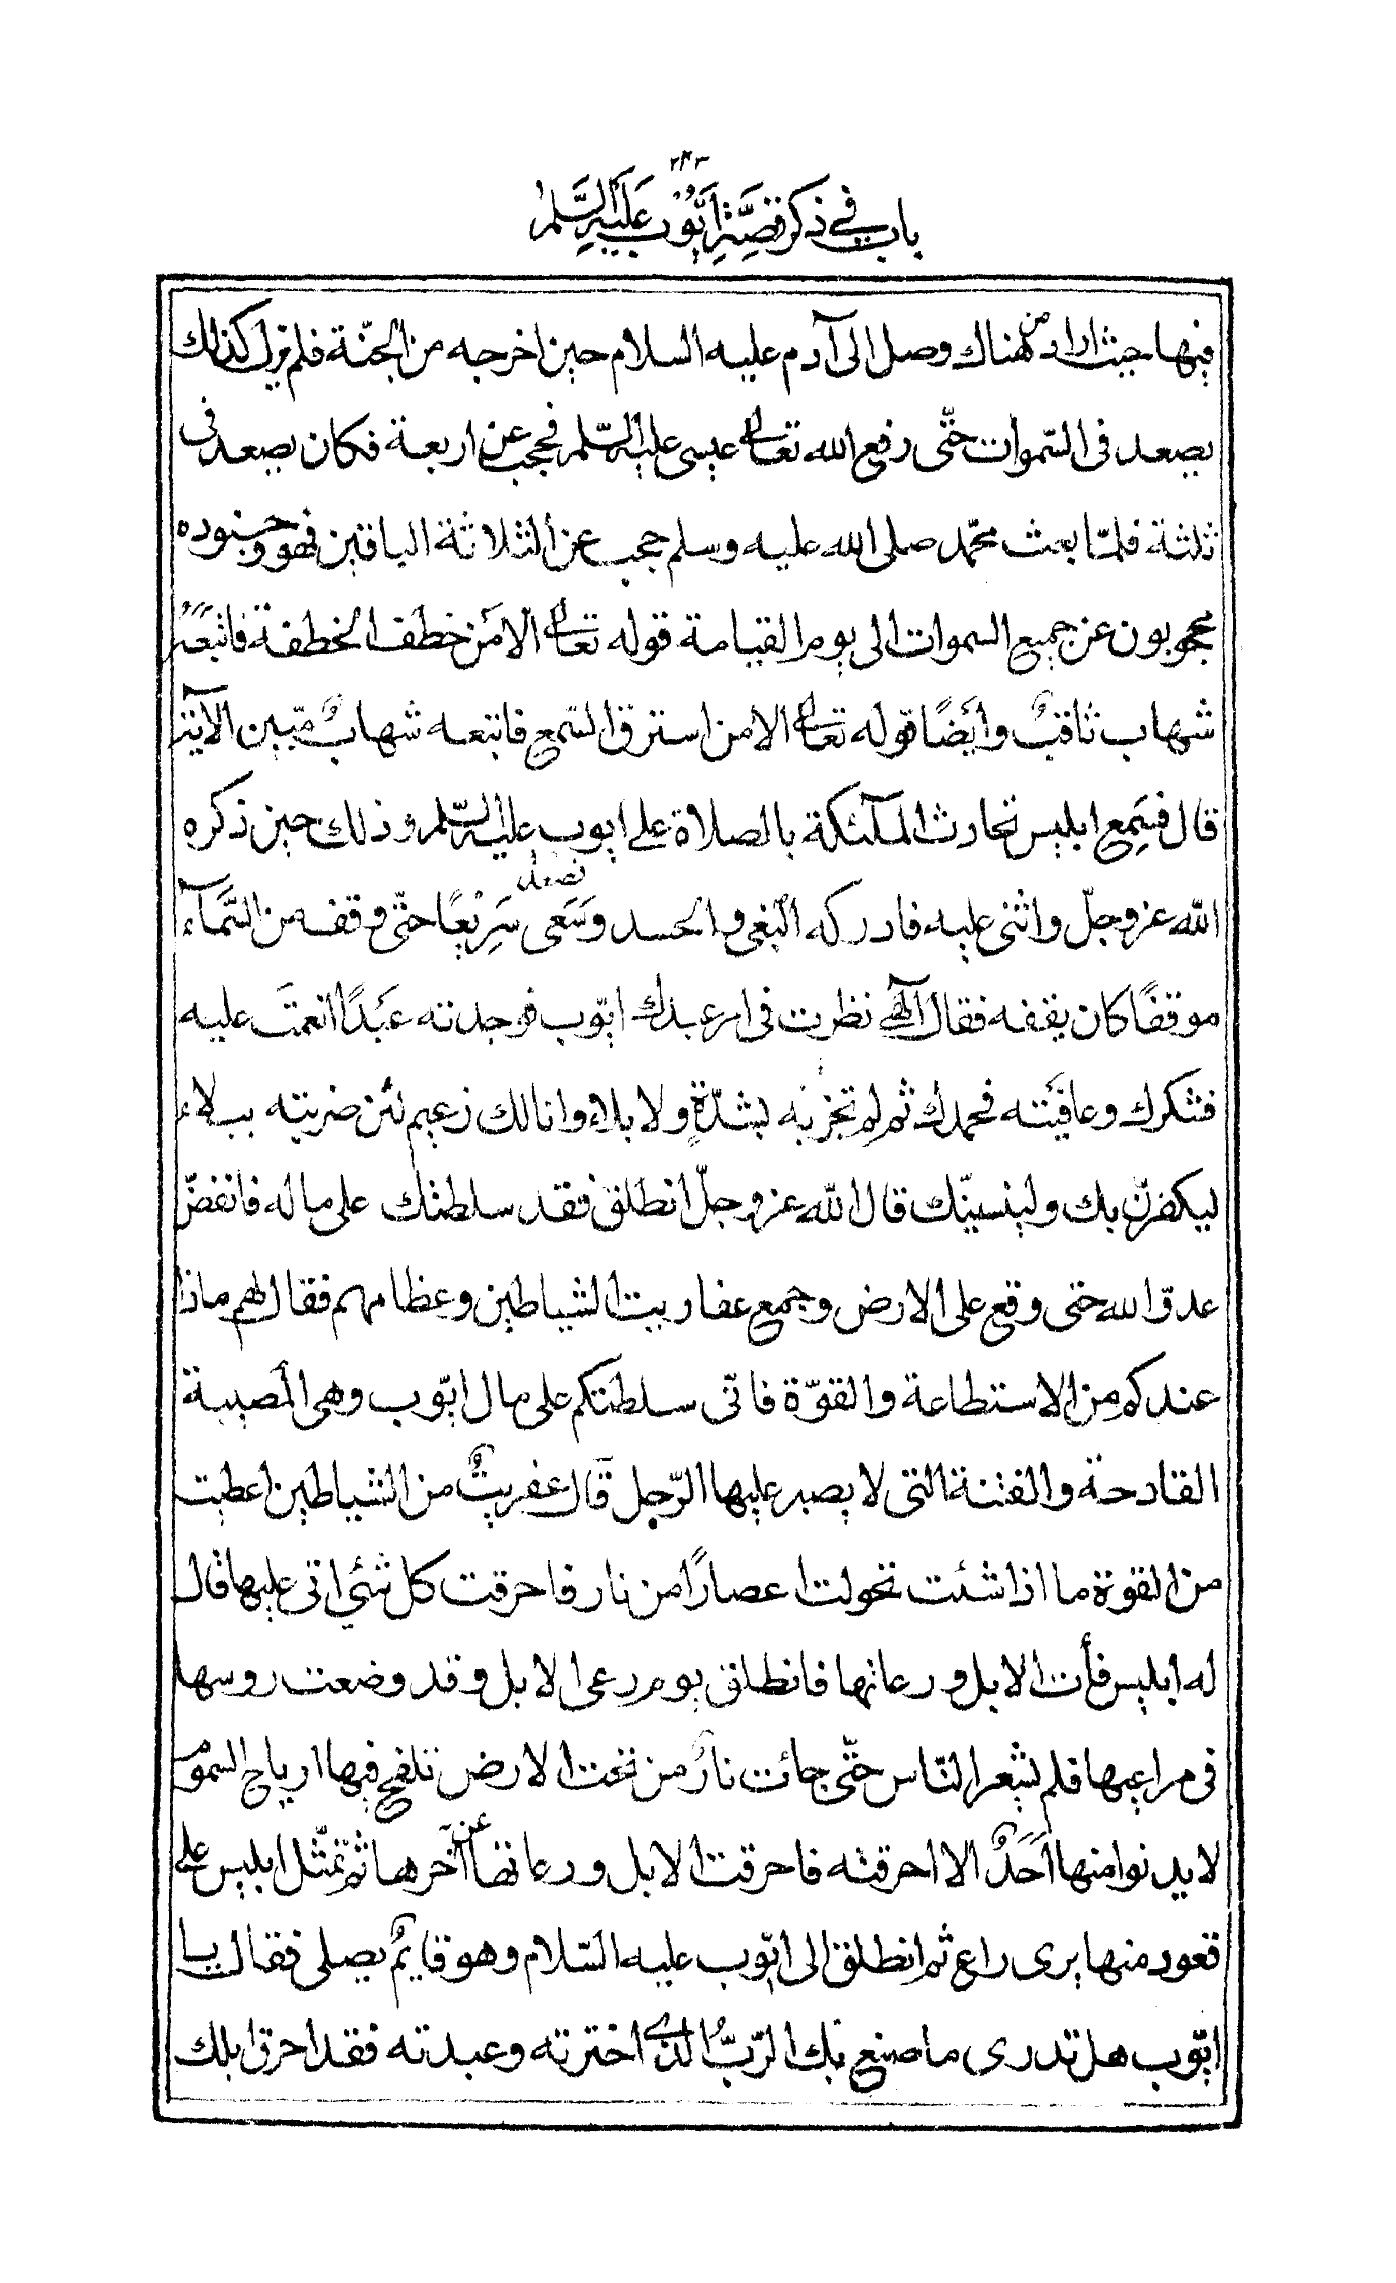 ٢٤٣
باب في ذكر قصَّةِ ايَّوُب عَلَيْهِ السَّلم
فيها حيث اراد من هناك وصل الى آدم عليه السلام حين اخرجه من الجنّة فلم يزل كذلك
يصعد فى السّموات حتّى رفع الله تعالى عيسى عليه السّلم فحجب عن اربعة فكان يصعد فى
ثلثة فلمّا بعث محمّد صلى الله عليه وسلم حجب عن الثلاثة الباقين فهو وجنوده
محجوبون عن جميع السموات الى يوم القيامة قوله تعالى الا مَن خطف الخطفة فاتبَعَهُ
شهاب ثاقبٌ وأيضًا قوله تعالى الا من استرق السّمع فاتبعه شهابٌ مّبين الآية
قال فسَمِع ابليس تحادث الملٓئكة بالصلاة على ايوب عليه السّلم وذلك حين ذكره
الله عز وجلّ واثنى عليه فادركه البغى والحسد وَسَعَى سَرِيْعًا حتّى وقفه من السَّمآء
موقفًا كان يقفه فقال آلٰهى نظرت فى امر عبدك ايّوب فوجدته عَبْدًا انعمتَ عليه
فشكرك وعافَيته فحمدك ثم لم تجزبه بشدّةٍ ولا بلاء وانا لك زعيم لئن ضربته ببلاء
ليكفرنّ بك ولينسينّك قال الله عز وجلّ انطلق فقد سلطتك على ماله فانقضّ
عدوّ الله حتى وقع على الارض وجمع عفاريت الشياطين وعظامهم فقال لهم ماذا
عندكم من الاستطاعة والقوّة فانّى سلطتكم على مال ايّوب وهى المصيبة
القادحة والفتنة التى لا يصبر عليها الرّجل قال عفريتٌ من الشياطين اعطيت
من القوة ما اذا شئت تحولت اعصارًا من نار فاحرقت كل شئي اتى عليها قال
له ابليس فأت الابل ورعاتها فانطلق يوم رعى الابل وقد وضعت روسها
فى مراعيها فلم يشعر النّاس حتّى جائت نارٌ من تحت الارض تلفح فيها ارياح السموم
لا يدنوا منها اَحَدٌ الا احرقته فاحرقت الابل ورعاتها عن آخرها ثم تمثّل ابليس على
قعود منها يرى راع ثم انطلق الى ايّوب عليه السّلام وهو قايمٌ يصلى فقال يا
ايّوب هل تدرى ما صنع بك الربُّ الذى اخترته وعبدته فقد احرق ابلك